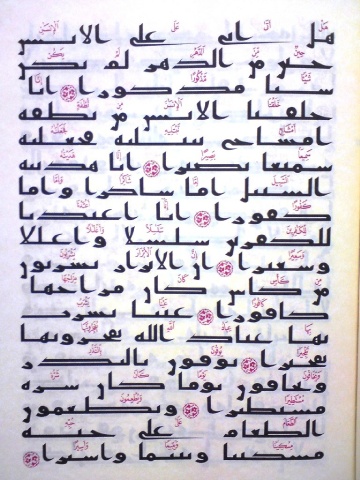 هل اتى على الانسن
حين من الدهر لم يكن
شيا مذكورا انا
خلقنا الانسن من نطفه
امشاج نبتليه فجعلنه
سميعا بصيرا انا هدينه
السبيل اما شاكرا واما
كفورا انا اعتدنا
للكفرين سلسلا واغللا
وسعيرا ان الابرار يشربون
من كاس كان مزاجها
كافورا عينا يشرب
بها عباد الله يفجرونها
تفجيرا يوفون بالنذر
ويخافون يوما كان شره
مستطيرا ويطعمون
الطعام على حبه
مسكينا ويتيما واسيرا